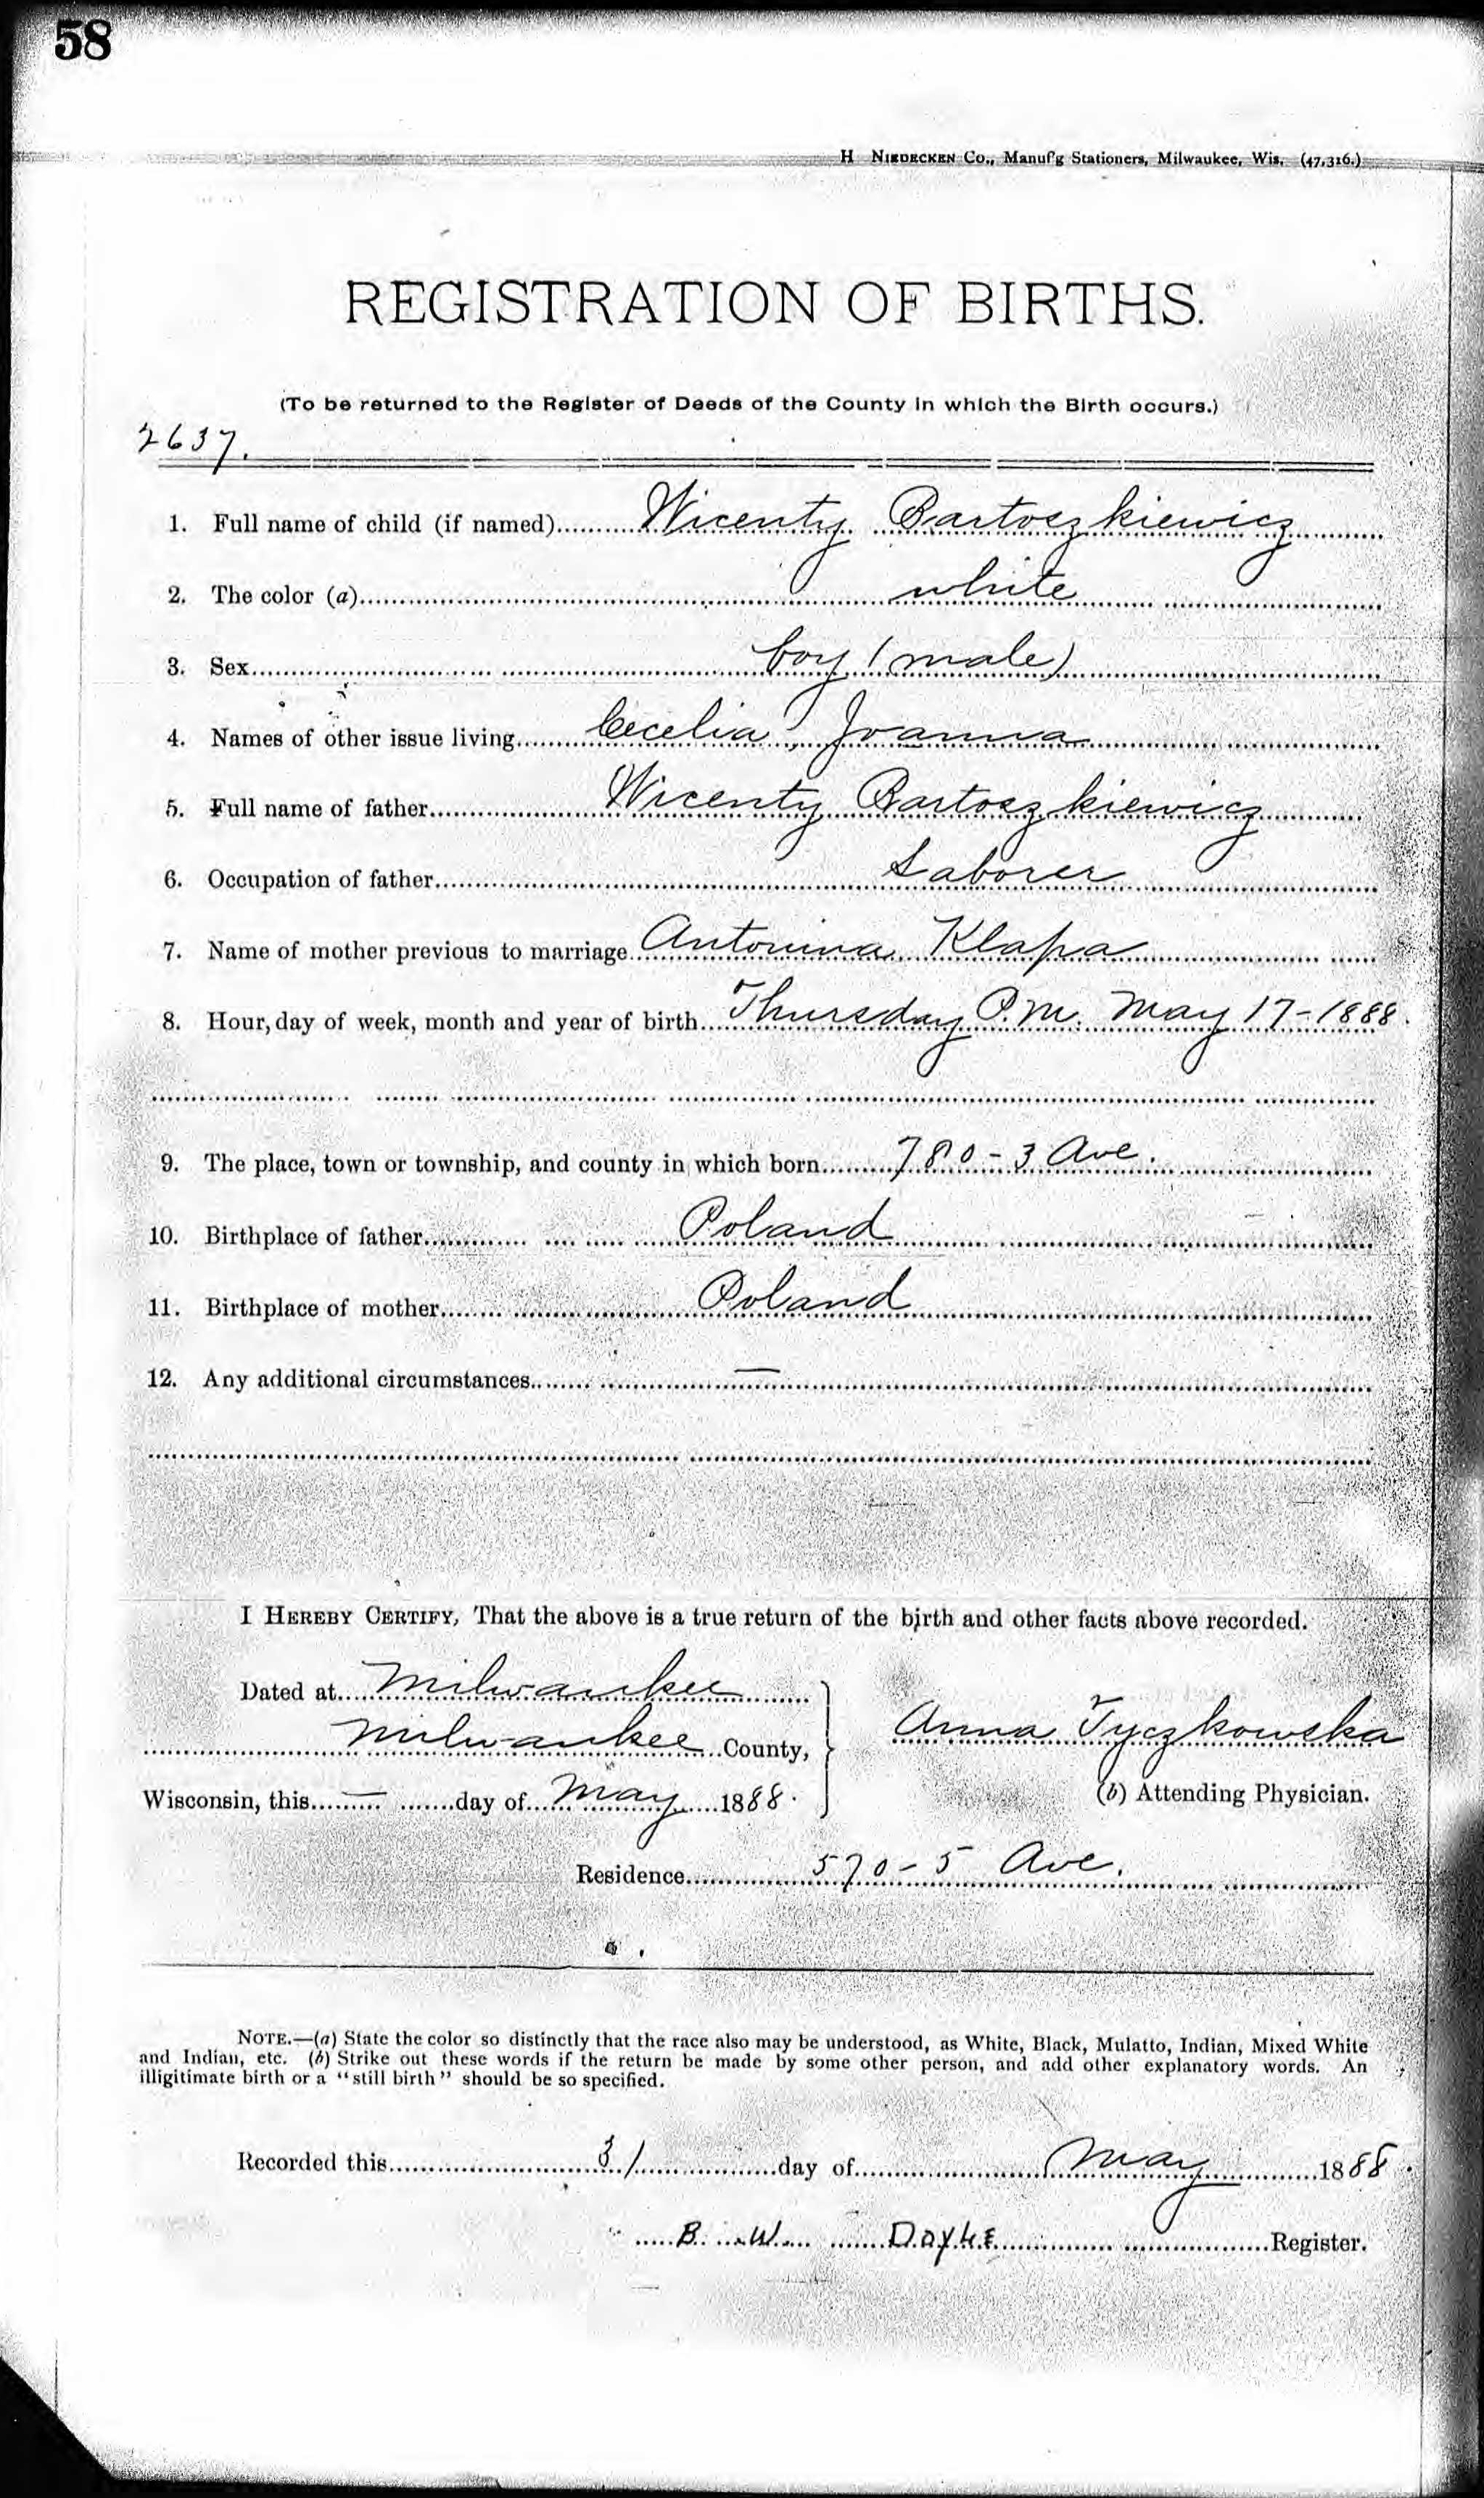 58
H NIEDECKEN Co., Manuf'g Stationers, Milwaukee, Wis. (47,316.)
REGISTRATION OF BIRTHS.
(To be returned to the Register of Deeds of the County in which the Birth occurs.)
2637.
1. Full name of child (if named) Wicenty Bartoszkiewicz
2. The color (a) white
3. Sex boy (male)
4. Names of other issue living Cecelia, Joanna
5. Full name of father Wicenty Bartoszkiewicz
6. Occupation of father Laborer
7. Name of mother previous to marriage Antonina Klapa
8. Hour, day of week, month and year of birth Thursday P.M. May 17-1888.
9. The place, town or township, and county in which born 780-3 Ave.
10. Birthplace of father Poland
11. Birthplace of mother Poland
12. Any additional circumstances —
I HEREBY CERTIFY, That the above is a true return of the birth and other facts above recorded.
Dated at Milwaukee
Milwaukee County,
Wisconsin, this — day of May 1888.
Anna Tyczkowska
(b) Attending Physician.
Residence 570-5 Ave.
NOTE.—(a) State the color so distinctly that the race also may be understood, as White, Black, Mulatto, Indian, Mixed White
and Indian, etc. (b) Strike out these words if the return be made by some other person, and add other explanatory words. An
illigitimate birth or a "still birth" should be so specified.
Recorded this 31 day of May 1888.
B. W. DOYLE Register.